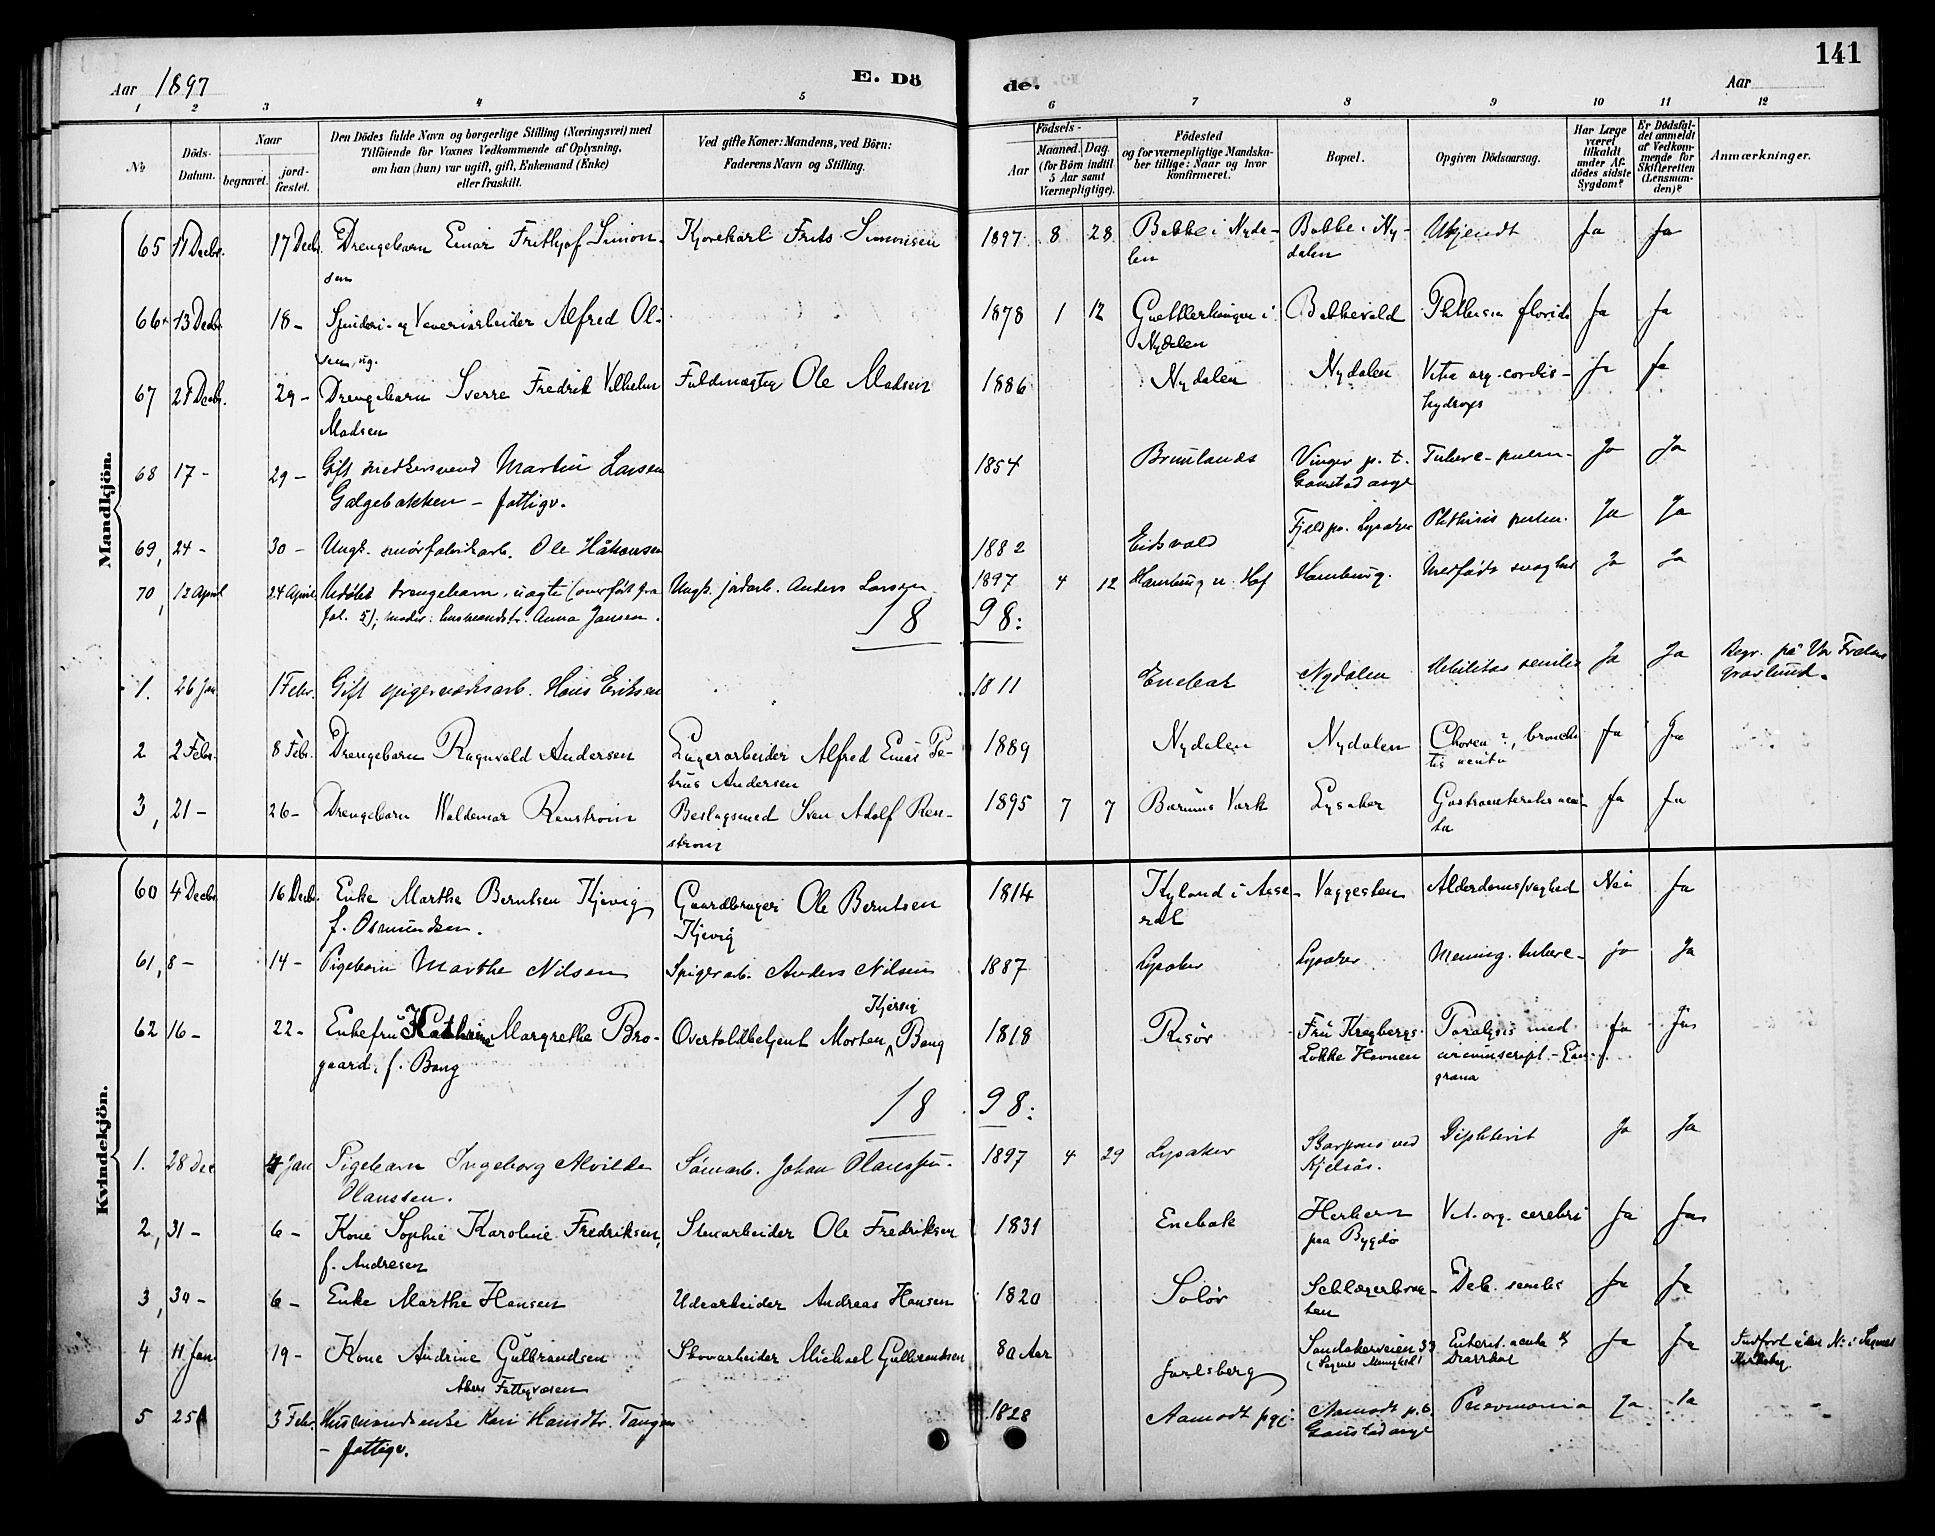 141
Aar 1897
E. Dö
de.
Aar
1 2 3 4 5 6 7 8 9 10 11 12
No
Döds-
Datum.
Naar
begravet.
jord-
fæstet.
Den Dödes fulde Navn og borgerlige Stilling (Næringsvei) med
Tilföiende for Voxnes Vedkommende af Oplysning,
om han (hun) var ugift, gift, Enkemand (Enke)
eller fraskilt.
Ved gifte Koner: Mandens, ved Börn:
Faderens Navn og Stilling.
Födsels-
Aar
Maaned. Dag.
(for Börn indtil
5 Aar samt
Værnepligtige).
Födested
og for værnepligtige Mandska-
ber tillige: Naar og hvor
konfirmeret.
Bopæl.
Opgiven Dödsaarsag.
Har Læge
været
tilkaldt
under Af-
dödes sidste
Sygdom?
Er Dödsfal-
det anmeldt
af Vedkom-
mende for
Skifteretten
(Lensman-
den)?
Anmærkninger.
Mandkjön.
65 11 Decbr. 17 Decbr. Drengebarn Einar Frithjof Simon- Kjørekarl Frits Simonsen 1897 8 28 Bakke i Nyda- Bakke i Ny- Ukjendt Ja Ja
sen len dalen
66 13 Decbr 18 - Spinderi- og Væveriarbeider Alfred Ol- 1878 1 12 i Ja Ja
sen, ug. Nydalen
67 21 Decbr. 29 - Drengebarn Sverre Fredrik Vilhelm Fuldmægtig Ole Madsen 1886 Nydalen Nydalen Vitia org. cordis - Ja Ja
Madsen hydrops
68 17 - 29 - Gift Martin Larsen 1854 Brunlanes Vinger p. t. Tuberc. pulm. Ja Ja
Galgebakken - fattigv. Gaustad asyl
69, 24 - 30 - Ungk. arb. Ole Håkonsen 1882 Eidsvold Fjeld pr. Lysaker Phthisis pulm. Ja Ja
70, 12 April 24 April Udøbt drengebarn, uægte (overført fra Ungk. jordarb. Anders Larsen 1897 4 12 Hamburg Hamburg. Medfødt svaghed Ja Ja
fol. 5); moder: Anna Jansen.
18 98:
1. 26 Jan. 1 Febr. Gift spigerværksarb. Hans Eriksen 1811 Enebak Nydalen Debilitas senilis Ja Ja Begr. på Vor Frelsers
gravlund.
2 2 Febr. 8 Febr. Drengebarn Ragnvald Andersen Lagerarbeider Alfred Einar Pe- 1889 Nydalen Nydalen Chorea ?, bronchi- Ja Ja
trus Andersen tis acuta
3, 21 - 26 - Drengebarn Waldemar Renstrøm Beslagsmed Sven Adolf Ren- 1895 7 7 Bærums Værk Lysaker Gastroenteritis acu- Ja Ja
strøm ta
Kvindekjön.
60 4 Decbr. 16 Decbr. Enke Marthe Berntsen Kjevig Gaardbruger Ole Berntsen 1814 Kyland i Aase- Væggesten Alderdomssvaghed Nei Ja
f. Osmundsen. Kjevig ral
61, 8 - 14 - Pigebarn Marthe Nilsen Spigerarb. Anders Nilsen 1887 Lysaker Lysaker Mening. tuberc. Ja Ja
62 16 - 22 - Enkefru Kathrine Margrethe Bro- Overtoldbetjent Morten Kjørvig Bang 1818 Risør Fru Kragbergs Paralysis med Ja Ja
gaard, f. Bang Løkke Havnen circumscript. - Gan-
græna
18 98:
1. 28 Dec 4 Jan Pigebarn Ingeborg Alvilde Sømarb. Johan Olaussen. 1897 4 29 Lysaker ved Diphterit Ja Ja
Olaussen. Kjelsås.
2, 31 - 6 - Kone Sophie Karoline Fredriksen, Stenarbeider Ole Fredriksen 1831 Enebak Herbern Vit. org. cerebri Ja Ja
f. Andresen paa Bygdø
3, 30 - 6 - Enke Marthe Hansen Udearbeider Andreas Hansen 1820 Solør Deb. senilis Ja Ja
4 11 Jan. 19 - Kone Andrine Gulbrandsen Skovarbeider Michael Gulbrandsen 80 Aar Jarlsberg Sandakerveien 33 Enterit. acuta Ja Ja Indført uden No i Sagnes
Akers Fattigvæsen (Sagnes Menighed) Diarrhoe
5 25 3 Febr. Husmandsenke Kari Hansdtr. Tangen 1828 Aamodt pgj. Aamodt p. t. Pneumonia Ja Ja
- fattigv. Gaustad asyl